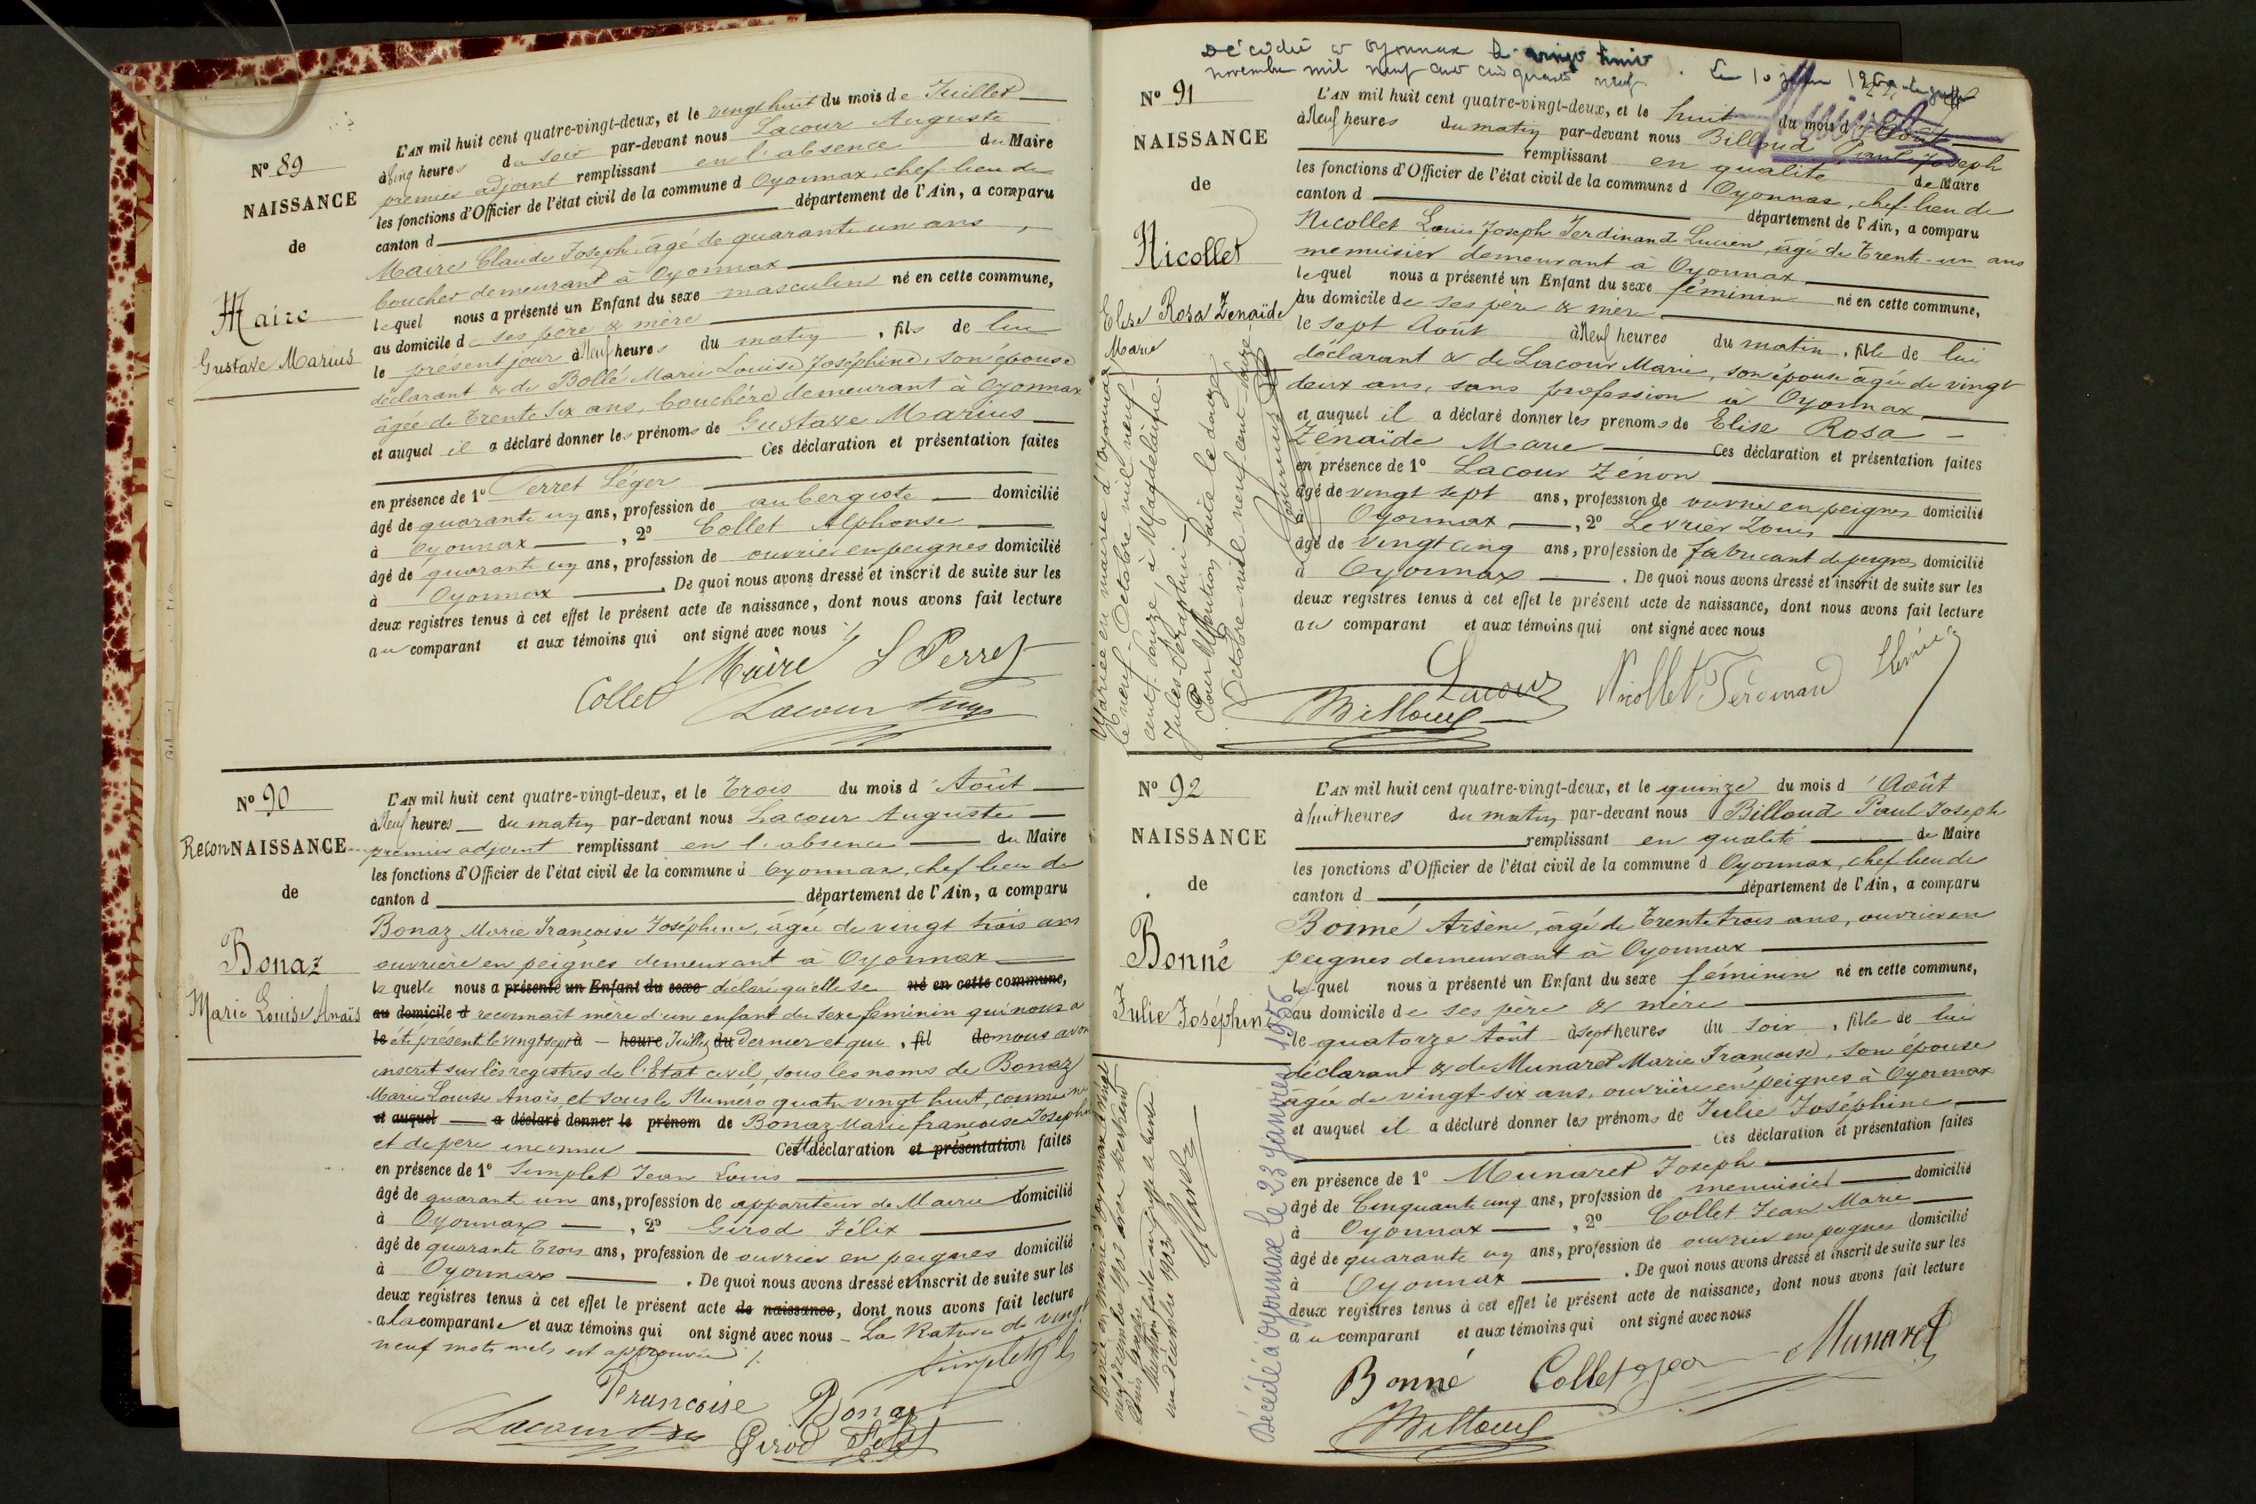 N° 89
NAISSANCE
de
Maire
Gustave Marius
L'AN mil huit cent quatre-vingt-deux, et le vingt huit du mois de Juillet
à cinq heures du soir par-devant nous Lacour Auguste
premier adjoint remplissant en l'absence du Maire
les fonctions d'Officier de l'état civil de la commune d Oyonnax, chef-lieu de
canton d département de l'Ain, a comparu
Maire Claude Joseph, âgé de quarante un ans,
boucher demeurant à Oyonnax
lequel nous a présenté un Enfant du sexe masculin né en cette commune,
au domicile de ses père & mère
le présent jour à Neuf heures du matin, fils de lui
déclarant & de Bollé Marie Louise Joséphine, son épouse
âgée de trente six ans, bouchère demeurant à Oyonnax
et auquel il a déclaré donner les prénoms de Gustave Marius
Ces déclaration et présentation faites
en présence de 1° Perret Léger
âgé de quarante un ans, profession de aubergiste domicilié
à Oyonnax, 2° Collet Alphonse
âgé de quarante un ans, profession de ouvrier en peignes domicilié
à Oyonnax. De quoi nous avons dressé et inscrit de suite sur les
deux registres tenus à cet effet le présent acte de naissance, dont nous avons fait lecture
au comparant et aux témoins qui ont signé avec nous
Maire Perret
Collet Lacour
N° 90
ReconNAISSANCE
de
Bonaz
Marie Louise Anaïs
L'AN mil huit cent quatre-vingt-deux, et le trois du mois d'Août
à Neuf heures du matin par-devant nous Lacour Auguste
premier adjoint remplissant en l'absence du Maire
les fonctions d'Officier de l'état civil de la commune d Oyonnax, chef lieu de
canton d département de l'Ain, a comparu
Bonaz Marie Françoise Joséphine, âgée de vingt trois ans
ouvrière en peignes demeurant à Oyonnax
laquelle nous a présenté un Enfant du sexe déclaré qu'elle se né en cette commune,
au domicile d reconnait mère d'un enfant du sexe féminin qui nous a
le été présenté le vingt sept à heure Juillet du dernier et que, fil de nous avons
inscrit sur les registres de l'Etat civil, sous les noms de Bonaz
Marie Louise Anaïs et sous le Numéro quatre vingt huit, comme née
et auquel a déclaré donner le prénom de Bonaz Marie françoise Joséphine
et de père inconnu Cette déclaration et présentation faites
en présence de 1° Simplet Jean Louis
âgé de quarante un ans, profession de appariteur de Mairie domicilié
à Oyonnax, 2° Girod Félix
âgé de quarante trois ans, profession de ouvrier en peignes domicilié
à Oyonnax. De quoi nous avons dressé et inscrit de suite sur les
deux registres tenus à cet effet le présent acte de naissance, dont nous avons fait lecture
a la comparante et aux témoins qui ont signé avec nous - La Rature de vingt
neuf mots nuls est approuvée
Simplet
Françoise Bonaz
Lacour Girod Félix
Décédée à Oyonnax le vingt huit
novembre mil neuf cent cinquante neuf. Le 10
N° 91
NAISSANCE
de
Nicollet
Elise Rosa Zenaïde
Marie
Mariée en mairie d'Oyonnax
le neuf Octobre mil neuf
cent douze, à
Jules Séraphin
Pour Mention faite le douze
Octobre mil neuf cent douze
L'AN mil huit cent quatre-vingt-deux, et le huit du mois d'Août
à Neuf heures du matin par-devant nous Billoud Paul Joseph
remplissant en qualité de Maire
les fonctions d'Officier de l'état civil de la commune d Oyonnax, chef-lieu de
canton d département de l'Ain, a comparu
Nicollet Louis Joseph Ferdinand Lucien, âgé de trente-un ans
menuisier demeurant à Oyonnax
lequel nous a présenté un Enfant du sexe féminin né en cette commune,
au domicile de ses père & mère
le sept Août à Neuf heures du matin, fille de lui
déclarant & de Lacour Marie, son épouse âgée de vingt
deux ans, sans profession à Oyonnax
et auquel il a déclaré donner les prenoms de Elise Rosa
Zénaïde Marie Ces déclaration et présentation faites
en présence de 1° Lacour Zénon
âgé de vingt sept ans, profession de ouvrier en peignes domicilié
à Oyonnax, 2° Levrier Louis
âgé de vingt cinq ans, profession de fabricant de peignes domicilié
à Oyonnax. De quoi nous avons dressé et inscrit de suite sur les
deux registres tenus à cet effet le présent acte de naissance, dont nous avons fait lecture
au comparant et aux témoins qui ont signé avec nous
Lacour Nicollet Ferdinand
Billoud
N° 92
NAISSANCE
de
Bonné
Julie Joséphine
Décédé à Oyonnax le 23 janvier 1956
L'AN mil huit cent quatre-vingt-deux, et le quinze du mois d'Août
à huit heures du matin par-devant nous Billoud Paul Joseph
remplissant en qualité de Maire
les fonctions d'Officier de l'état civil de la commune d Oyonnax, chef lieu de
canton d département de l'Ain, a comparu
Bonné Arsène, âgé de trente trois ans, ouvrier en
peignes demeurant à Oyonnax
lequel nous a présenté un Enfant du sexe féminin né en cette commune,
au domicile de ses père & mère
le quatorze Août à sept heures du soir, fille de lui
déclarant & de Munaret Marie Françoise, son épouse
âgée de vingt-six ans, ouvrière en peignes à Oyonnax
et auquel il a déclaré donner les prénoms de Julie Joséphine
Ces déclaration et présentation faites
en présence de 1° Munaret Joseph
âgé de Cinquante cinq ans, profession de menuisier domicilié
à Oyonnax, 2° Collet Jean Marie
âgé de quarante un ans, profession de ouvrier en peignes domicilié
à Oyonnax. De quoi nous avons dressé et inscrit de suite sur les
deux registres tenus à cet effet le présent acte de naissance, dont nous avons fait lecture
au comparant et aux témoins qui ont signé avec nous
Bonné Collet Munaret
Billoud